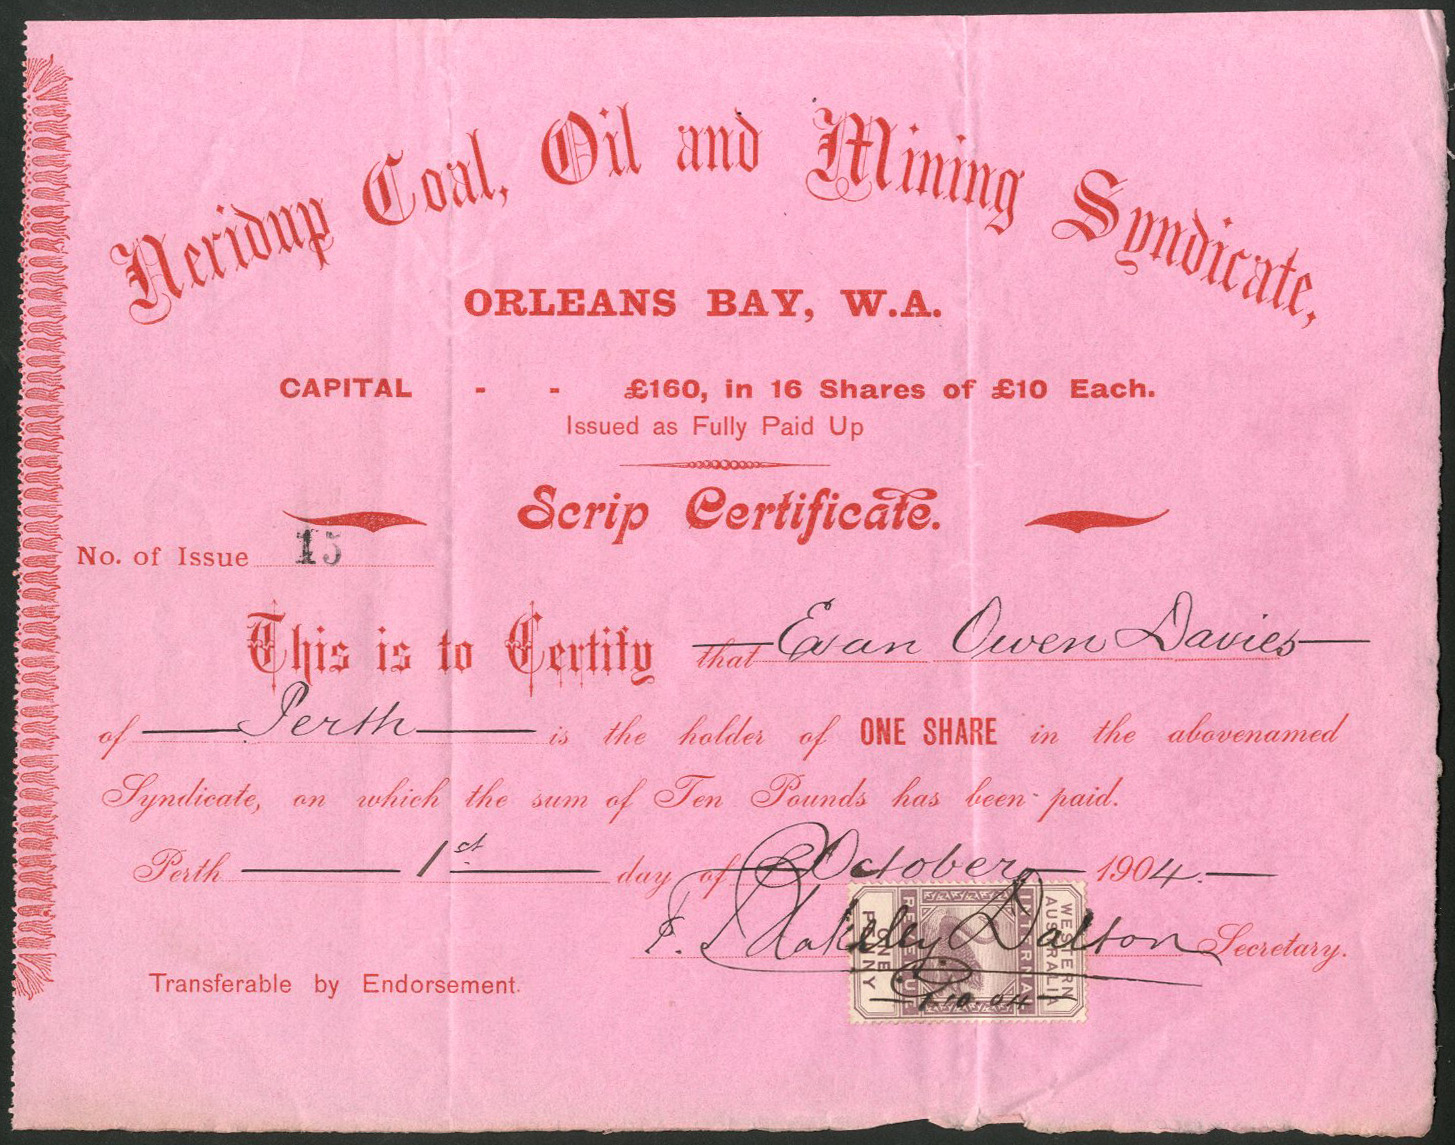 Neridup Coal, Oil and Mining Syndicate,
ORLEANS BAY, W.A.
CAPITAL - - £160, in 16 Shares of £10 Each.
Issued as Fully Paid Up
Scrip Certificate.
No. of Issue 15
This is to Certify that Evan Owen Davies
of Perth is the holder of ONE SHARE in the abovenamed
Syndicate, on which the sum of Ten Pounds has been paid.
Perth 1st day of October 1904.
F. Blakeley Dalton Secretary.
WESTERN AUSTRALIA
INTERNAL REVENUE
ONE PENNY
1.10.04
Transferable by Endorsement.